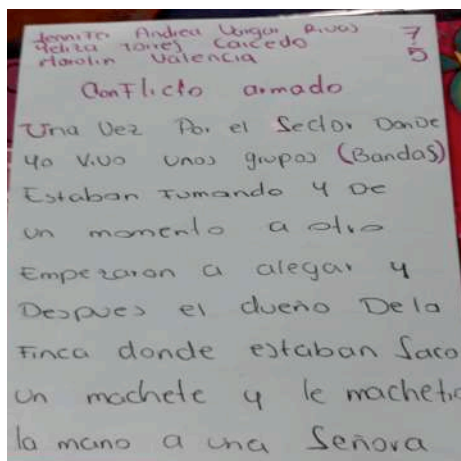 Jennifer Andrea Vargas Rivas
Meliza Torres Caicedo
Harolin Valencia
7
5
Conflicto armado
Una Vez Por el Sector DonDe
yo Vivo unos grupos (BandaS)
Estaban Fumando y De
un momento a otro
Empezaron a alegar y
Despues el dueño De la
Finca donde estaban Saco
un machete y le machetio
la mano a una Señora